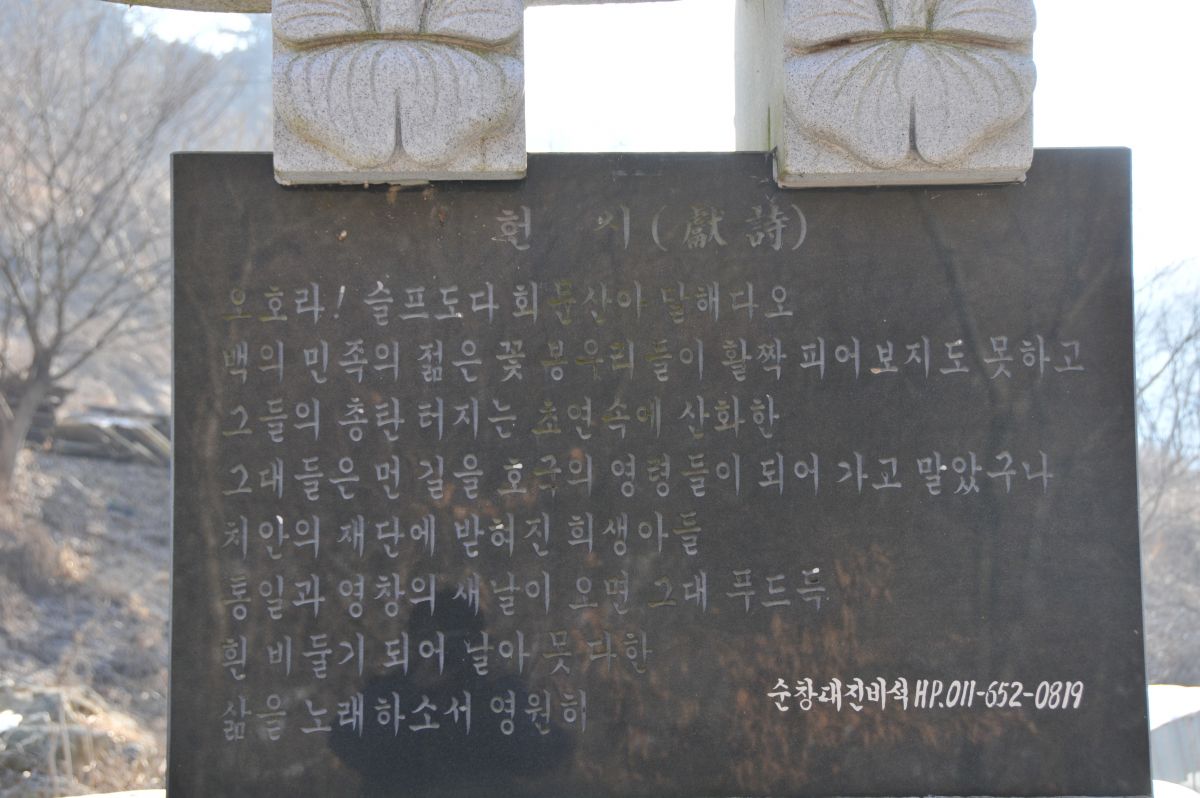 헌 시(獻 詩)
오호라! 슬프도다 회문산아 말해다오
백의 민족의 젊은 꽃 봉우리들이 활짝 피어보지도 못하고
그들의 총탄 터지는 초연속에 산화한
그대들은 먼 길을 호국의 영령들이 되어 가고 말았구나
치안의 재단에 받혀진 희생아들
통일과 영창의 새날이 오면 그대 푸드득
흰 비둘기 되어 날아 못다한
삶을 노래하소서 영원히
순창대진비석 HP.011-652-0819